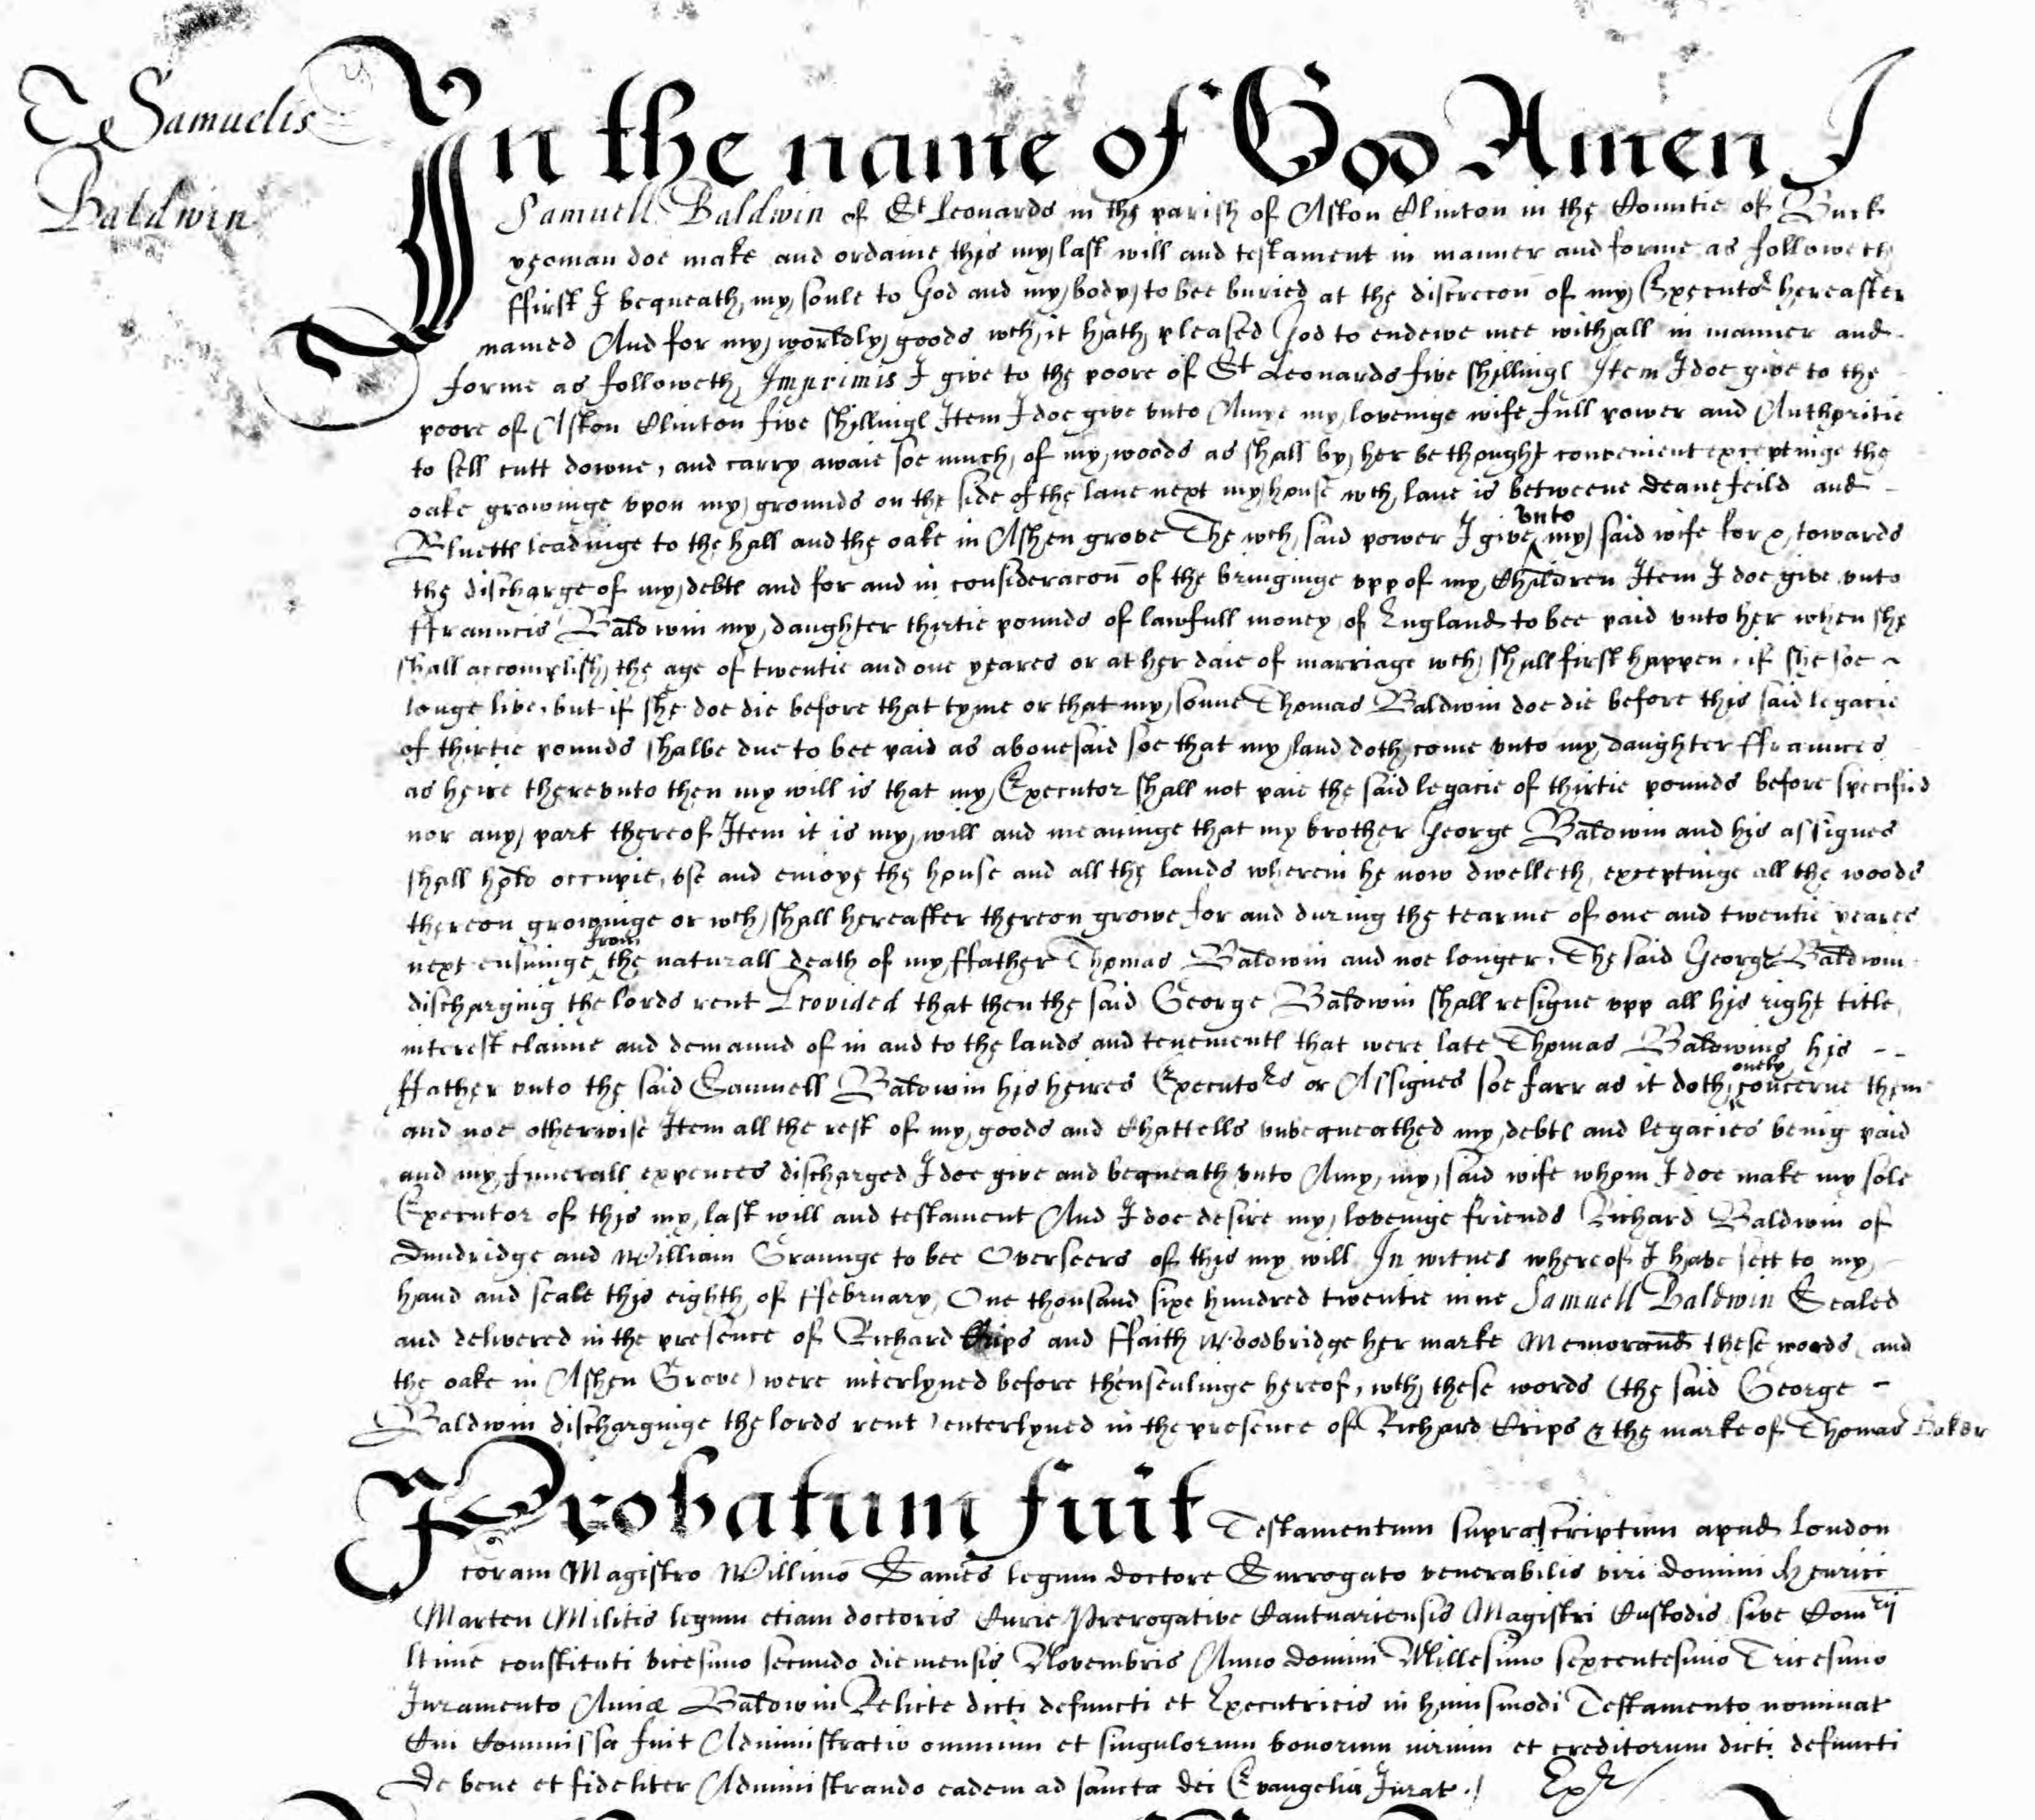 T Samuelis
Baldwin
In the name of God Amen I
Samuell Baldwin of St Leonards in the parish of Aston Clinton in the Countie of Buck
yeoman doe make and ordaine this my last will and testament in manner and forme as followeth
ffirst I bequeath my soule to God and my body to bee buried at the discrecon of my Executor hereafter
named And for my worldly goods wch it hath pleased God to endewe mee withall in manner and
forme as followeth Imprimis I give to the poore of St Leonards five shillings Item I doe give to the
poore of Aston Clinton five shillings Item I doe give vnto Amye my loveinge wife full power and Authoritie
to sell cutt downe, and carry awaie soe much of my woods as shall by her be thought convenient exceptinge the
oake growinge vpon my grounds on the side of the lane next my house wch lane is betweene Deane feild and
Bluetts leadinge to the hall and the oake in Ashen grove The wch said power I give vnto my said wife for & towards
the discharge of my debts and for and in consideracon of the bringinge vpp of my Children Item I doe give vnto
ffrauncis Baldwin my daughter thirtie pounds of lawfull money of England to bee paid vnto her when she
shall accomplish the age of twentie and one yeares or at her daie of marriage wch shall first happen, if she soe
longe live, but if she doe die before that tyme or that my sonne Thomas Baldwin doe die before this said legacie
of thirtie pounds shalbe due to bee paid as abovesaid soe that my land doth come vnto my daughter ffraunces
as heire therevnto then my will is that my Executor shall not paie the said legacie of thirtie pounds before specified
nor any part thereof Item it is my will and meaninge that my brother George Baldwin and his assignes
shall hold occupie, vse and enioye the house and all the lands wherein he now dwelleth, exceptinge all the woods
thereon growinge or wch shall hereafter thereon growe for and during the tearme of one and twentie yeares
next ensuinge from the naturall death of my ffather Thomas Baldwin and noe longer, The said George Baldwin
discharging the lords rent Provided that then the said George Baldwin shall resigne vpp all his right title,
interest claime and demaund of in and to the lands and tenements that were late Thomas Baldwins his
ffather vnto the said Samuell Baldwin his heires Executors or Assignes soe farr as it doth onely concerne them
and noe otherwise Item all the rest of my goods and Chattells vnbequeathed my debts and legacies being paid
and my funerall expences discharged I doe give and bequeath vnto Amy my said wife whom I doe make my sole
Executor of this my last will and testament And I doe desire my loveinge friends Richard Baldwin of
Dundridge and William Graunge to bee Overseers of this my will In witnes whereof I have sett to my
hand and seale this eighth of ffebruary One thousand sixe hundred twentie nine Samuell Baldwin Sealed
and delivered in the presence of Richard Crips and ffaith Woodbridge her marke Memorand these words (and
the oake in Ashen Grove) were interlyned before thensealinge hereof, wth these words (the said George
Baldwin discharginge the lords rent) enterlyned in the presence of Richard Crips & the marke of Thomas Baker
Probatum fuit Testamentum suprascriptum apud London
coram Magistro Willimo Sames legum doctore Surrogato venerabilis viri domini Henrici
Marten Militis legum etiam doctoris Curie Prerogative Cantuariensis Magistri Custodis sive Comrij
ltime constituti vicesimo secundo die mensis Novembris Anno domini Millesimo sexcentesimo Tricesimo
Iuramento Amiæ Baldwin Relicte dicti defuncti et Executricis in huiusmodi Testamento nominat
Cui Commissa fuit Administratio omnium et singulorum bonorum iurium et creditorum dicti defuncti
De bene et fideliter Administrando eadem ad sancta dei Evangelia Jurat.